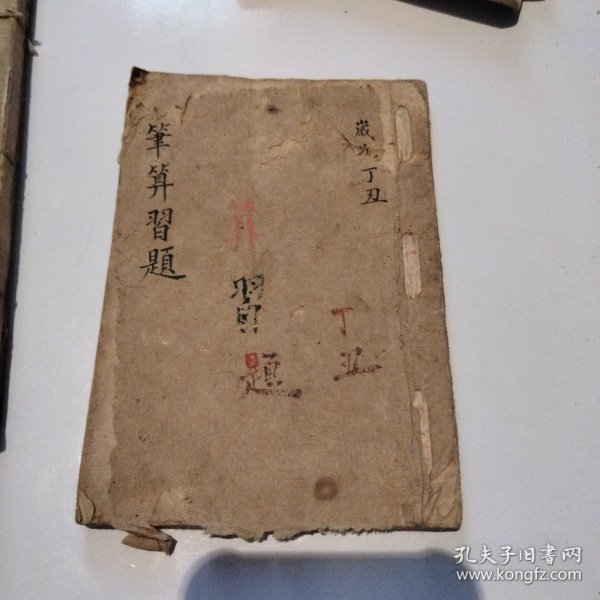 歲次丁丑
筆算習題
算習題
丁丑
孔夫子旧书网
www.kongfz.com